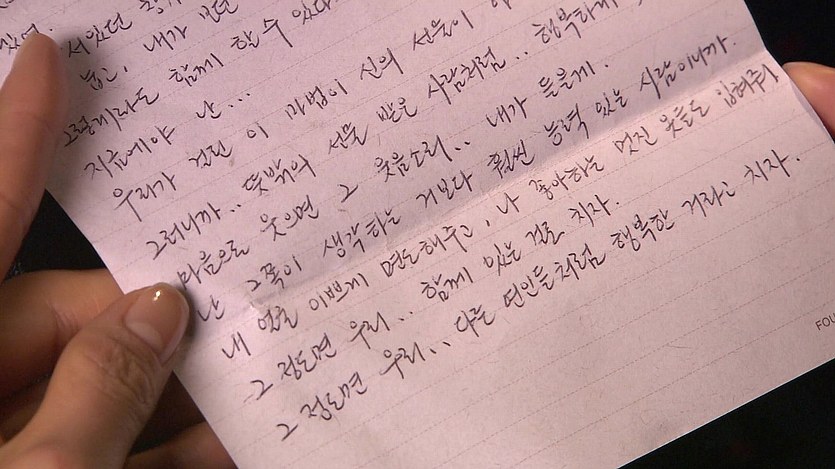 서있던
눕고, 내가
그렇게라도 함께 할 수 있다
지금에야 난...
우리가 걸린 이 마법이 신의 선물이
그러니까.. 뜻밖의 선물 받은 사람처럼.. 행복하게
마음으로 웃으면 그 웃음소리.. 내가 들을게.
난 그쪽이 생각하는 거보다 훨씬 능력 있는 사람이니까.
내 얼굴 이쁘게 면도해주고, 나 좋아하는 멋진 옷들도 입혀줘
그 정도면 우리.. 함께 있는 걸로 치자.
그 정도면 우리.. 다른 연인들처럼 행복한 거라고 치자.
FOU